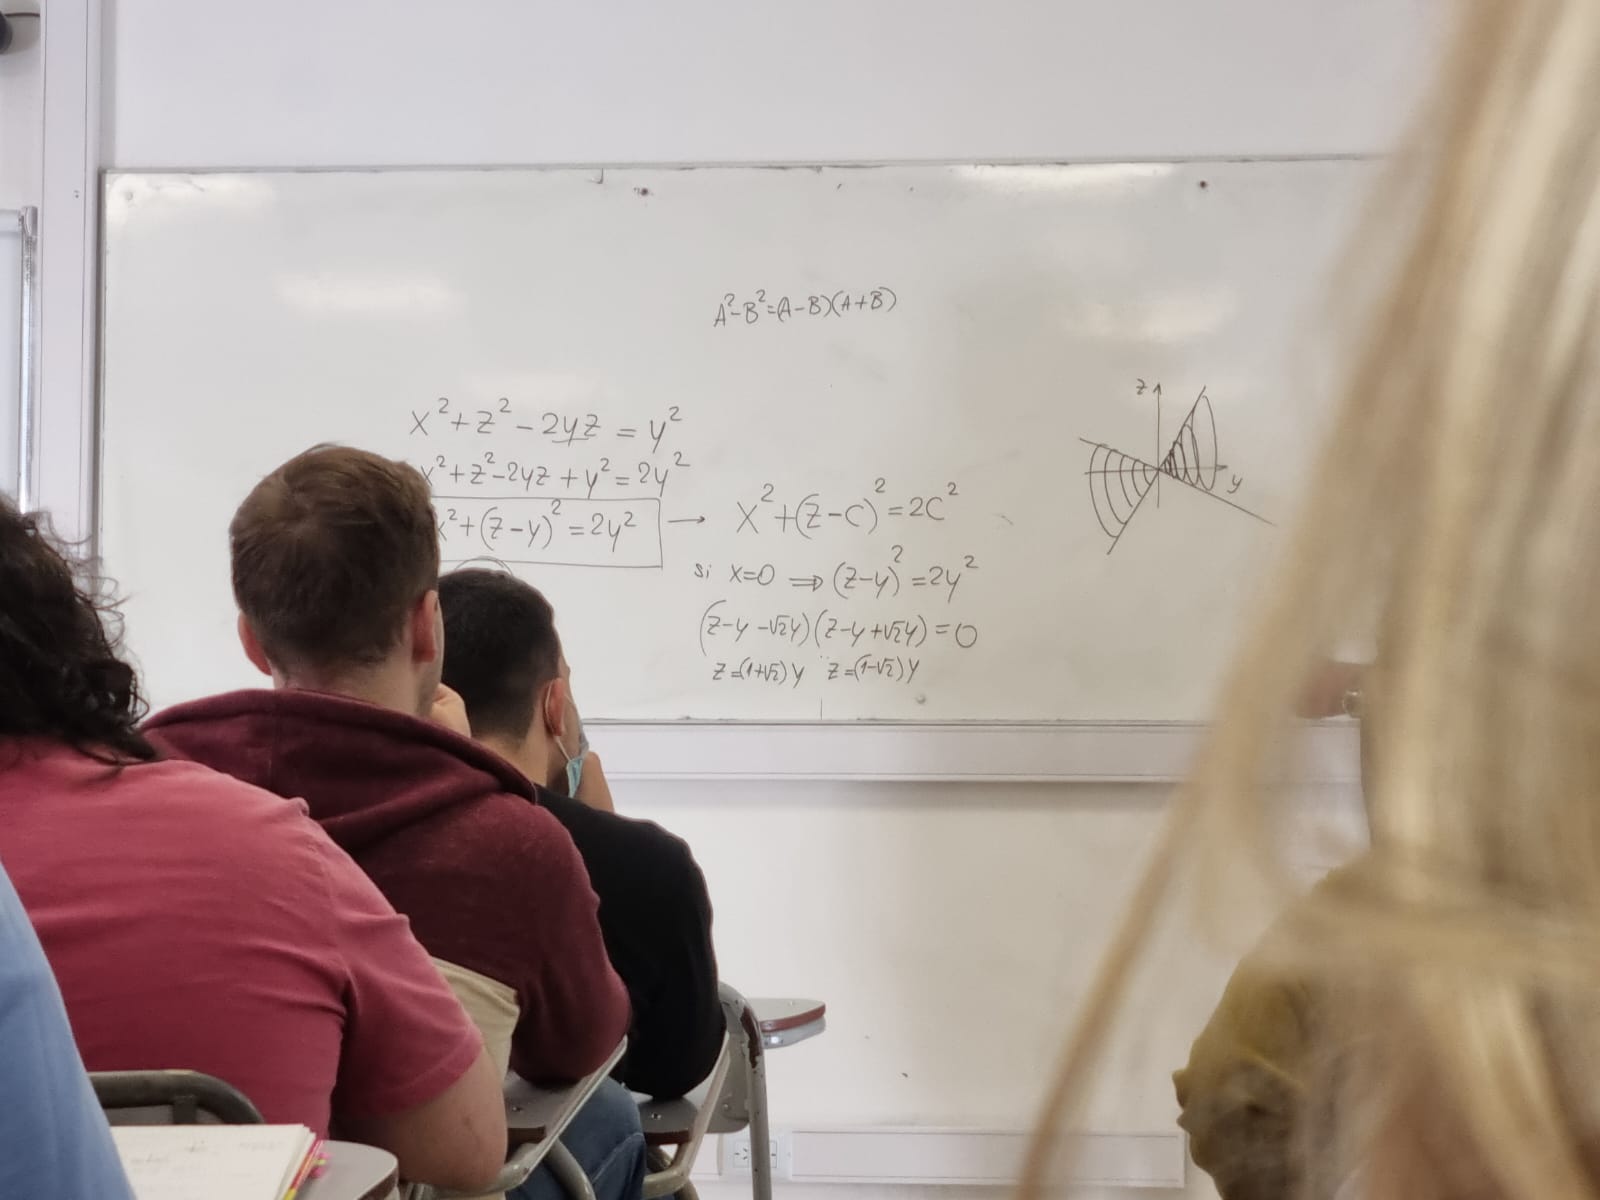 A²-B²=(A-B)(A+B)
x²+z²-2yz = y²
x²+z²-2yz+y²=2y²
x²+(z-y)²=2y² → x²+(z-c)²=2c²
si x=0 ⇒ (z-y)²=2y²
(z-y-√2y)(z-y+√2y)=0
z=(1+√2)y z=(1-√2)y
z
y